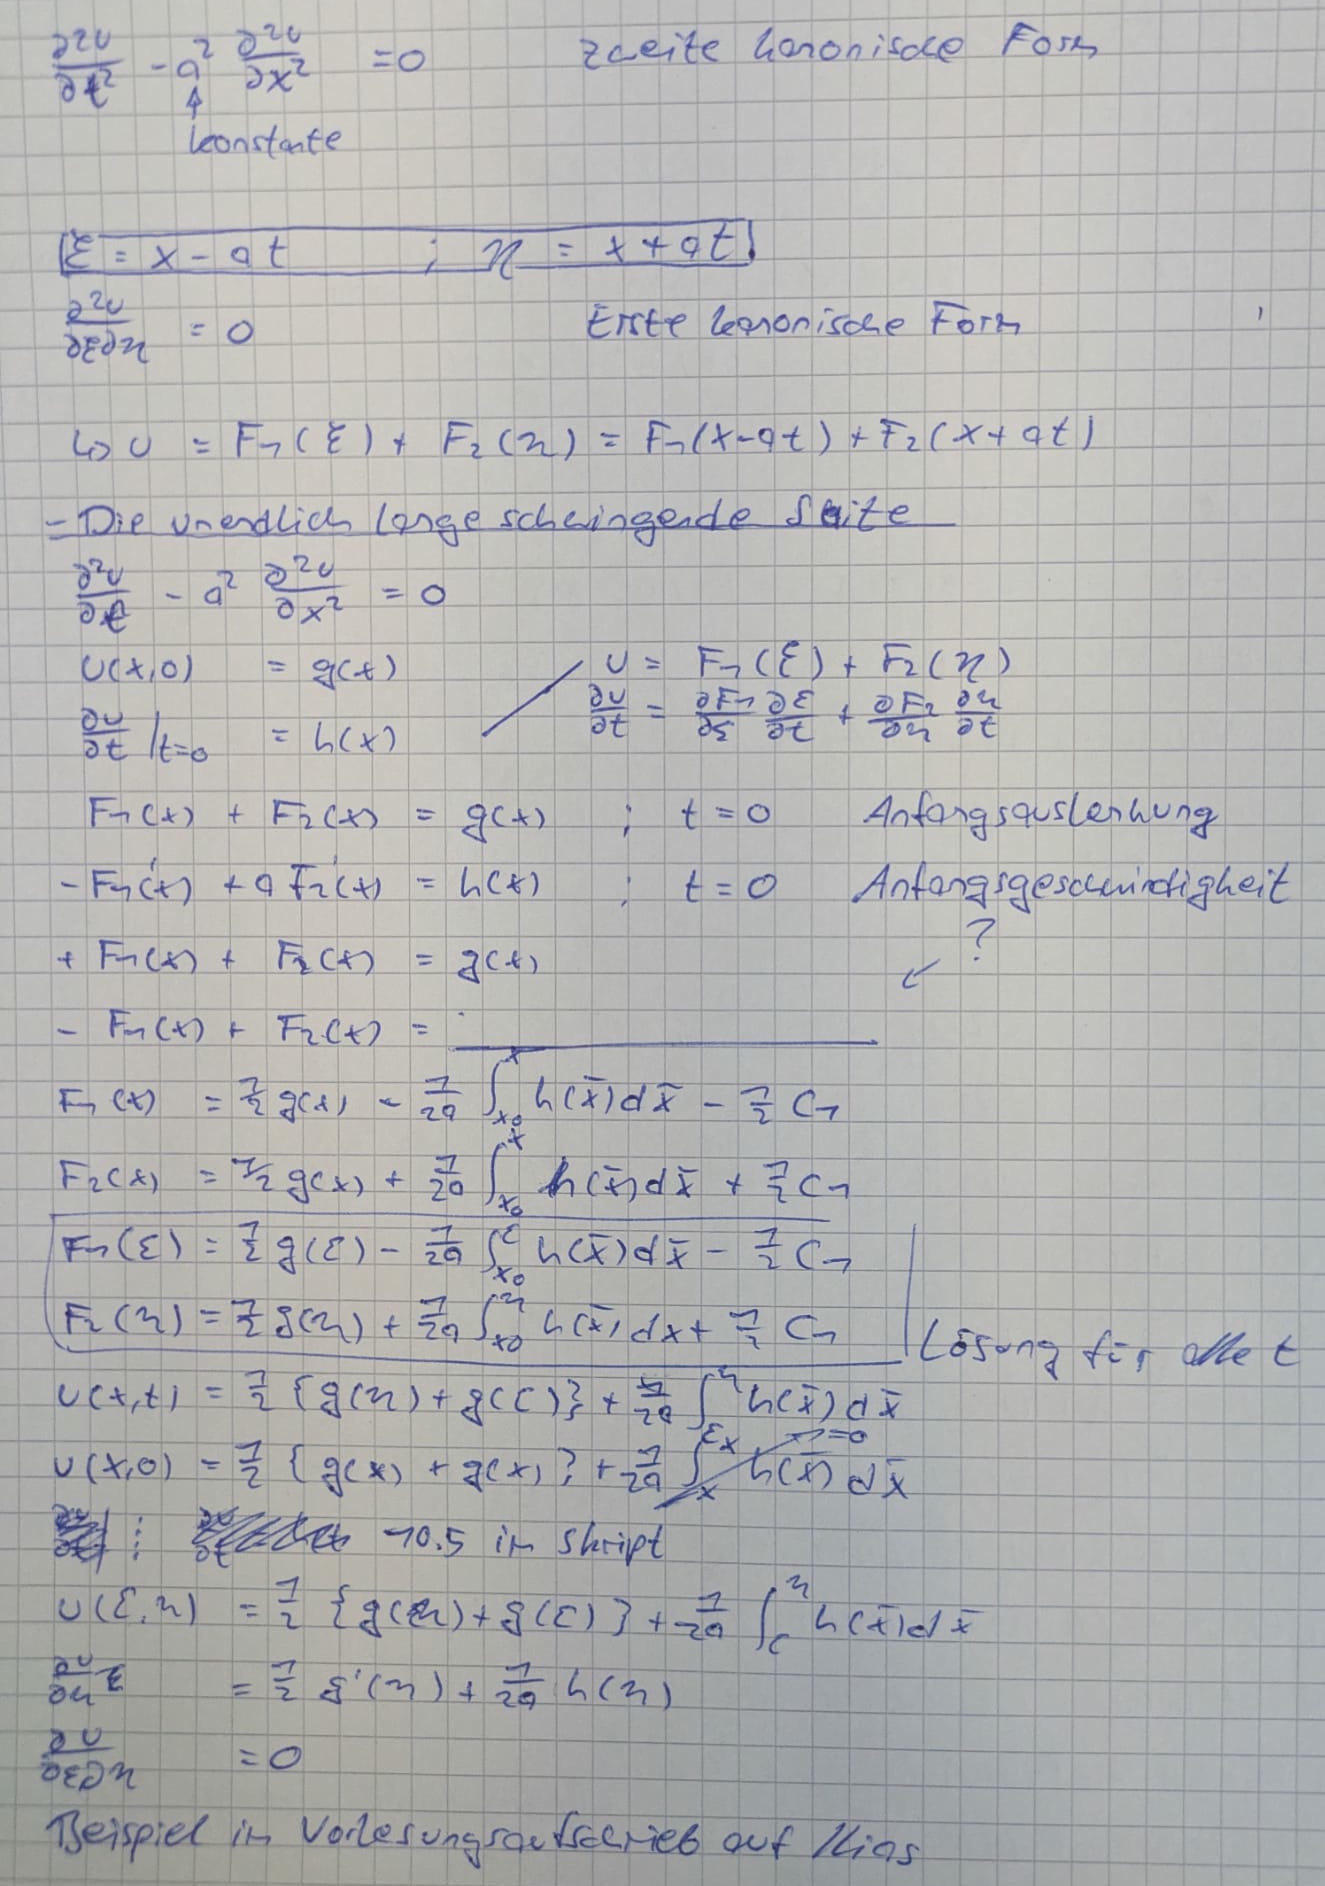 ∂²u/∂t² - a² ∂²u/∂x² = 0 zweite kanonische Form
↑
konstante
ξ = x - at ; η = x + at
∂²u/∂ξ∂η = 0 Erste kanonische Form
↳ u = F₁(ξ) + F₂(η) = F₁(x-at) + F₂(x+at)
- Die unendlich lange schwingende Saite
∂²u/∂t² - a² ∂²u/∂x² = 0
u(x,0) = g(x) u = F₁(ξ) + F₂(η)
∂u/∂t |t=0 = h(x) ∂u/∂t = ∂F₁/∂ξ ∂ξ/∂t + ∂F₂/∂η ∂η/∂t
F₁(x) + F₂(x) = g(x) ; t = 0 Anfangsauslenkung
- F₁'(x) + a F₂'(x) = h(x) ; t = 0 Anfangsgeschwindigkeit
?
+ F₁(x) + F₂(x) = g(x) ↙
- F₁(x) + F₂(x) =
F₁(x) = 1/2 g(x) - 1/2a ∫_x₀^x h(x̄)dx̄ - 1/2 C₁
F₂(x) = 1/2 g(x) + 1/2a ∫_x₀^x h(x̄)dx̄ + 1/2 C₁
F₁(ξ) = 1/2 g(ξ) - 1/2a ∫_x₀^ξ h(x̄)dx̄ - 1/2 C₁
F₂(η) = 1/2 g(η) + 1/2a ∫_x₀^η h(x̄)dx + 1/2 C₁ Lösung für alle t
u(x,t) = 1/2 {g(η) + g(ξ)} + 1/2a ∫_ξ^η h(x̄)dx̄
u(x,0) = 1/2 {g(x) + g(x)} + 1/2a ∫_x^x h(x̄)dx̄ → =0
⋮ 10.5 im Skript
u(ξ,η) = 1/2 {g(η) + g(ξ)} + 1/2a ∫_ξ^η h(x̄)dx̄
∂u/∂η = 1/2 g'(η) + 1/2a h(η)
∂u/∂ξ∂η = 0
Beispiel im Vorlesungsaufschrieb auf Ilias